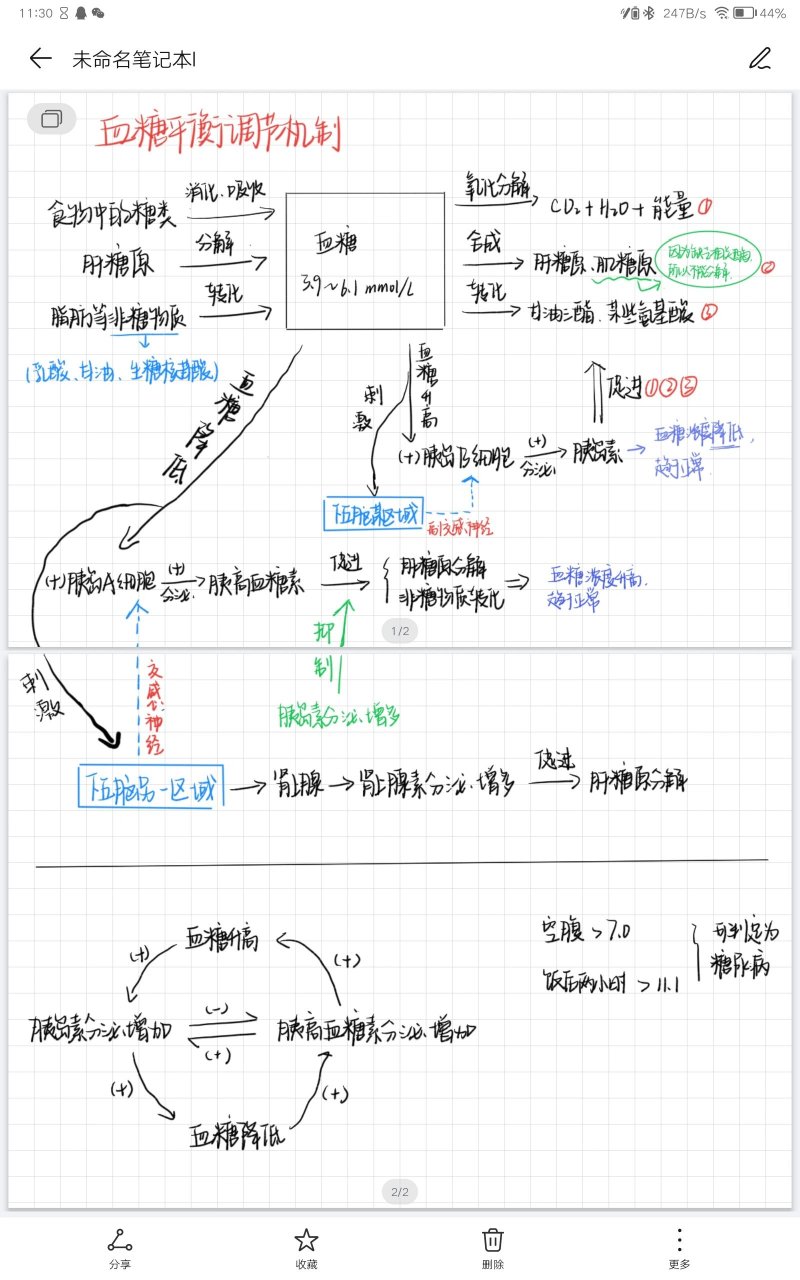 11:30 247B/s 44%
未命名笔记本1
血糖平衡调节机制
食物中的糖类 消化、吸收
肝糖原 分解
脂肪等非糖物质 转化
(乳酸、甘油、生糖氨基酸)
血糖
3.9~6.1 mmol/L
氧化分解 CO₂+H₂O+能量 ①
合成 肝糖原、肌糖原 ②
因为缺乏相关
所以不能分解
转化 甘油三酯、某些氨基酸 ③
血糖降低
血糖升高
刺激
促进①②③
(+)胰岛B细胞 (+) 分泌 胰岛素
血糖浓度降低,
趋于正常
下丘脑某区域
副交感神经
(+)胰岛A细胞 (+) 分泌 胰高血糖素 促进
肝糖原分解
非糖物质转化
血糖浓度升高,
趋于正常
1/2
抑制
刺激
交感神经
胰岛素分泌增多
下丘脑另一区域 肾上腺 肾上腺素分泌增多 促进 肝糖原分解
血糖升高
(+) (+)
胰岛素分泌增加 (-) (+) 胰高血糖素分泌增加
(+) (+)
血糖降低
空腹>7.0
饭后两小时>11.1
可判定为
糖尿病
2/2
分享 收藏 删除 更多